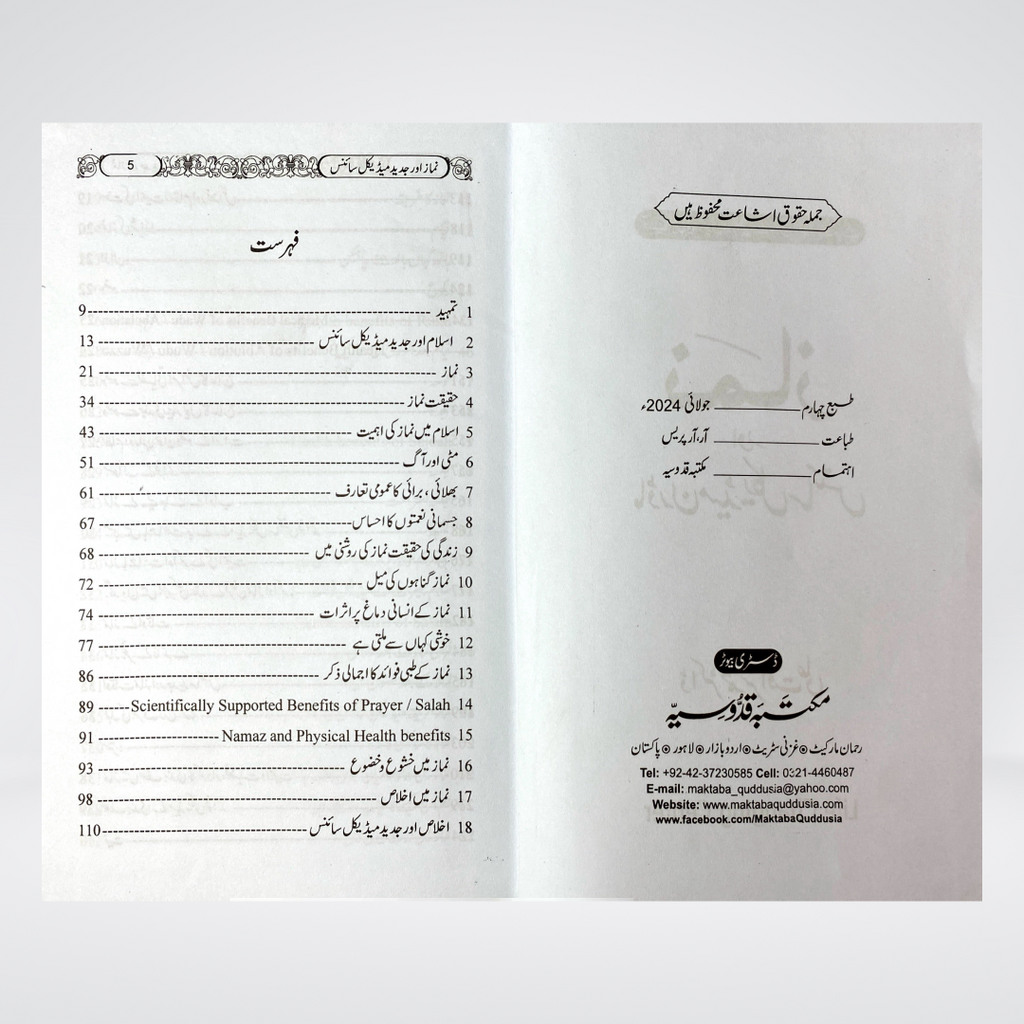 جملہ حقوق اشاعت محفوظ ہیں
طبع چہارم ــــــــــــ جولائی 2024ء
طباعت ــــــــــــ آر، آر پریس
اہتمام ــــــــــــ مکتبہ قدوسیہ
ڈسٹری بیوٹر
مکتبہ قدوسیہ
رحمان مارکیٹ ● غزنی سٹریٹ ● اردو بازار ● لاہور ● پاکستان
Tel: +92-42-37230585 Cell: 0321-4460487
E-mail: maktaba_quddusia@yahoo.com
Website: www.maktabaquddusia.com
www.facebook.com/MaktabaQuddusia
نماز اور جدید میڈیکل سائنس 5
فہرست
1 تمہید ------ 9
2 اسلام اور جدید میڈیکل سائنس ------ 13
3 نماز ------ 21
4 حقیقت نماز ------ 34
5 اسلام میں نماز کی اہمیت ------ 43
6 مٹی اور آگ ------ 51
7 بھلائی، برائی کا عمومی تعارف ------ 61
8 جسمانی نعمتوں کا احساس ------ 67
9 زندگی کی حقیقت نماز کی روشنی میں ------ 68
10 نماز گناہوں کی میل ------ 72
11 نماز کے انسانی دماغ پر اثرات ------ 74
12 خوشی کہاں سے ملتی ہے ------ 77
13 نماز کے طبی فوائد کا اجمالی ذکر ------ 86
14 Scientifically Supported Benefits of Prayer / Salah ------ 89
15 Namaz and Physical Health benefits ------ 91
16 نماز میں خشوع و خضوع ------ 93
17 نماز میں اخلاص ------ 98
18 اخلاص اور جدید میڈیکل سائنس ------ 110